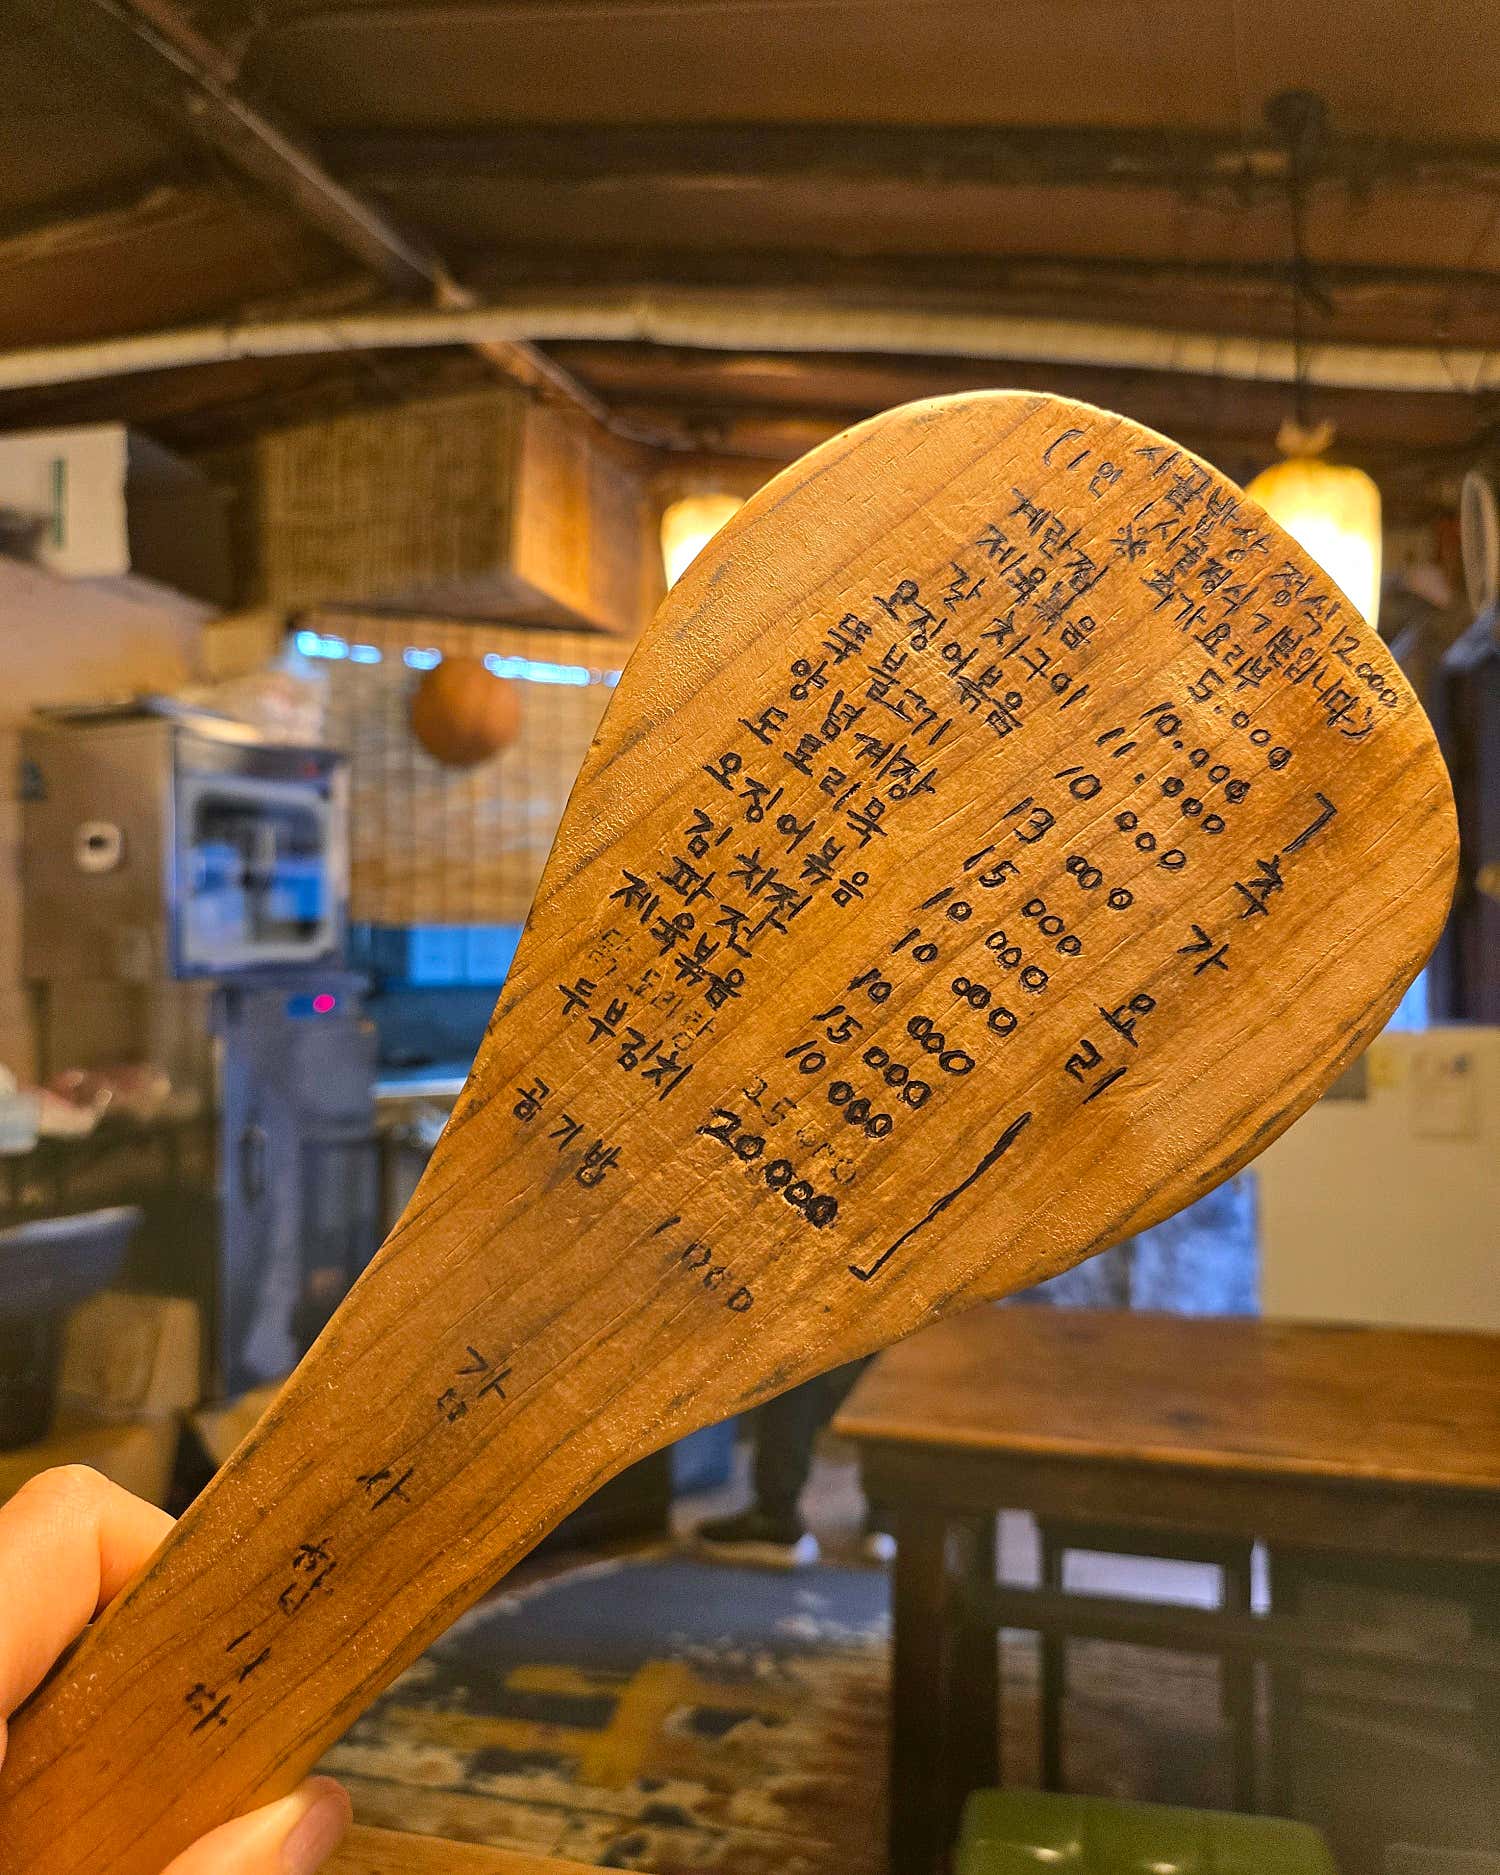 시골밥상 정식 12000
(1인 (시골정식 기본입니다)
※ 추가요리
계란찜 5.000
제육볶음 10.000
갈치구이 11.000
오징어볶음 10 000
뚝불고기 13 000
양념계장 15 000
도토리묵 10 000
오징어볶음 10 000
김치전 10 000
파전 15 000
제육볶음 10 000
닭도리탕
두부김치 20.000
공기밥 1000
추가요리
감사합니다